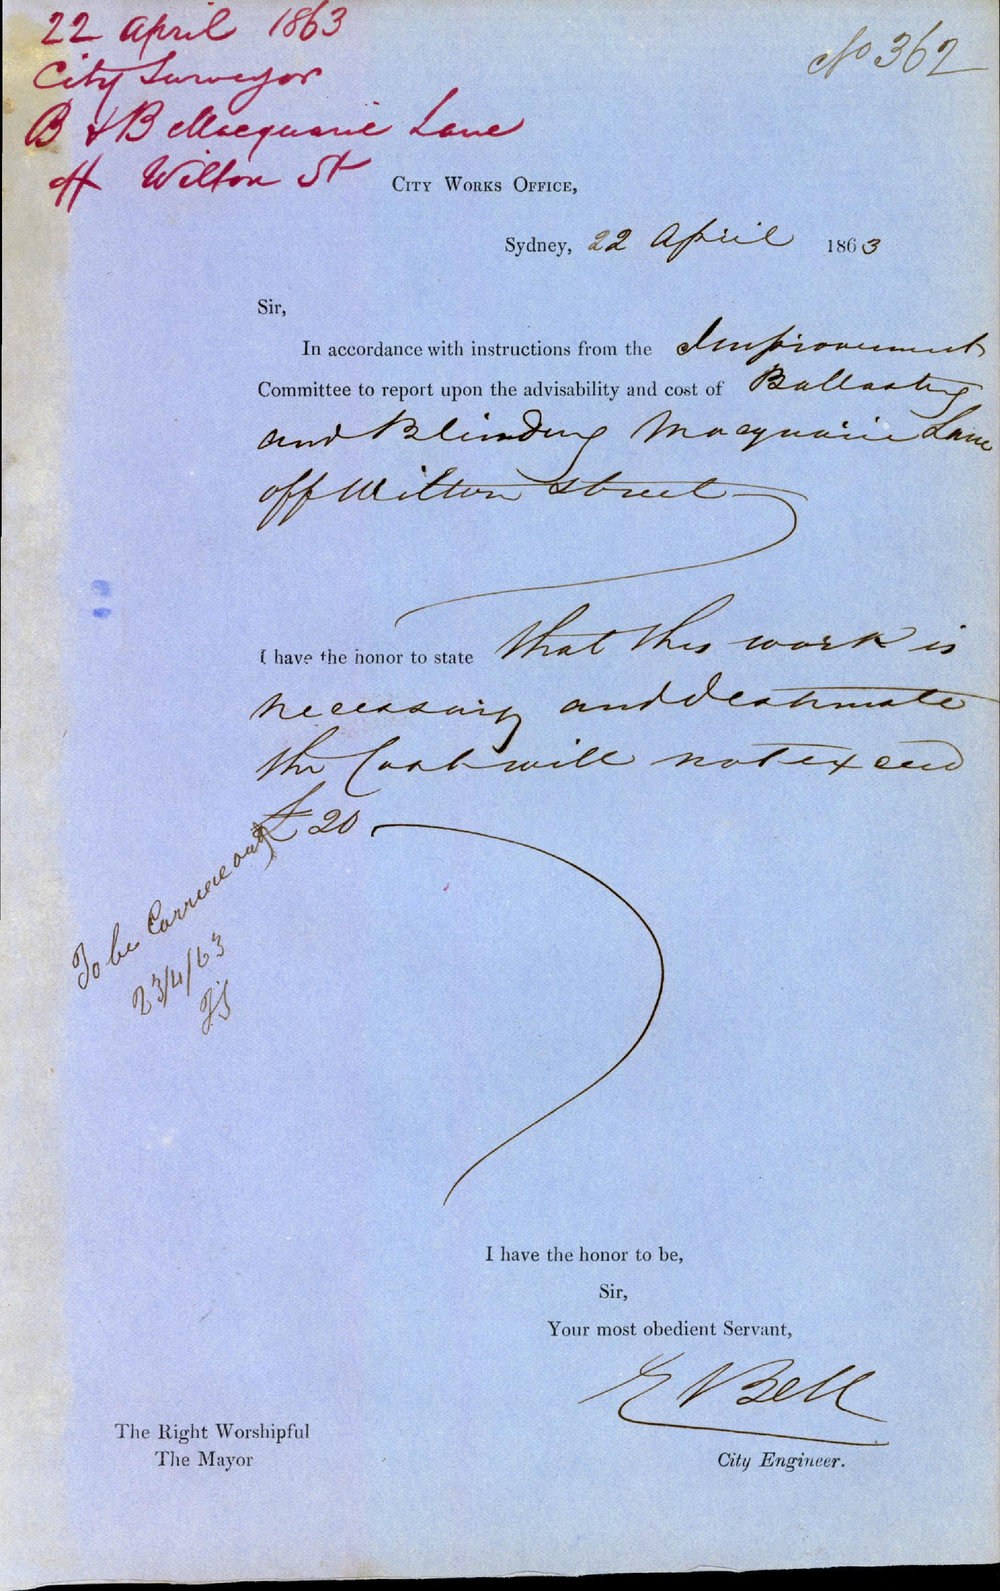 22 April 1863
City Surveyor
B & B Macquarie Lane
off Wilton St
No 362
City Works Office,
Sydney, 22 April 1863
Sir,
In accordance with instructions from the Improvement
Committee to report upon the advisability and cost of Ballasting
and Blinding Macquarie Lane
off Wilton Street
I have the honor to state that this work is
necessary and I estimate
the Cost will not exceed
£20
To be Carried out
23/4/63
I have the honor to be,
Sir,
Your most obedient Servant,
E Bell
City Engineer.
The Right Worshipful
The Mayor